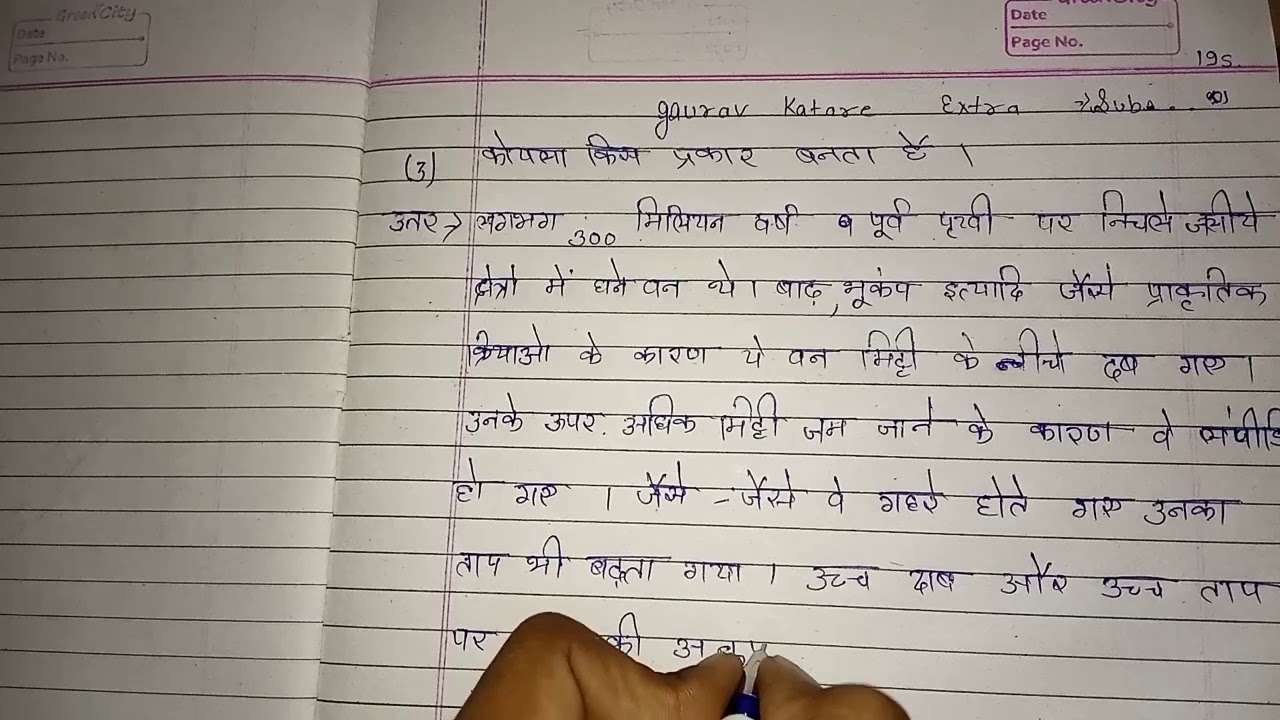 Green City
Date
Page No.
Date
Page No.
195
gaurav Katare Extra
(3) कोयला किस प्रकार बनता हैं ।
उतर→ लगभग 300 मिलियन वर्ष पूर्व पृथ्वी पर निचले जलीये
क्षेत्रो में घने वन थे । बाढ़, भूकंप इत्यादि जैसे प्राकृतिक
क्रियाओ के कारण ये वन मिट्टी के नीचे दब गए ।
उनके ऊपर अधिक मिट्टी जम जाने के कारण वे संपीडि
हो गए । जैसे - जैसे वे गहरे होते गए उनका
ताप भी बढ़ता गया । उच्च दाब और उच्च ताप
पर की